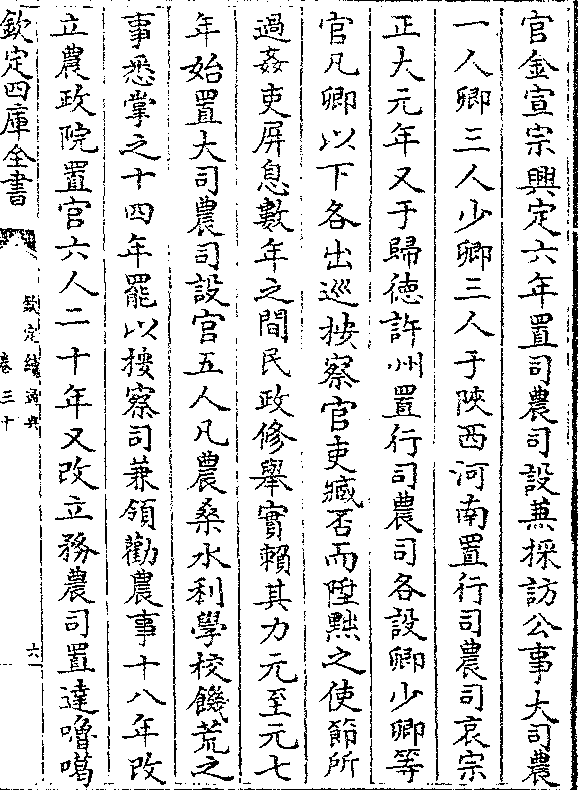 官金宣宗興定六年置司農司設兼採訪公事大司農
一人卿三人少卿三人于陜西河南置行司農司哀宗
正大元年又于歸徳許州置行司農司各設卿少卿等
官凡卿以下各出巡按察官吏臧否而陞黜之使節所
過姦吏屏息數年之間民政修舉實賴其力元至元七
年始置大司農司設官五人凡農桑水利學校饑荒之
事悉掌之十四年罷以按察司兼領勸農事十八年改
立農政院置官六人二十年又改立務農司置達嚕噶
欽定四庫全書
欽定續通典
卷三十
六